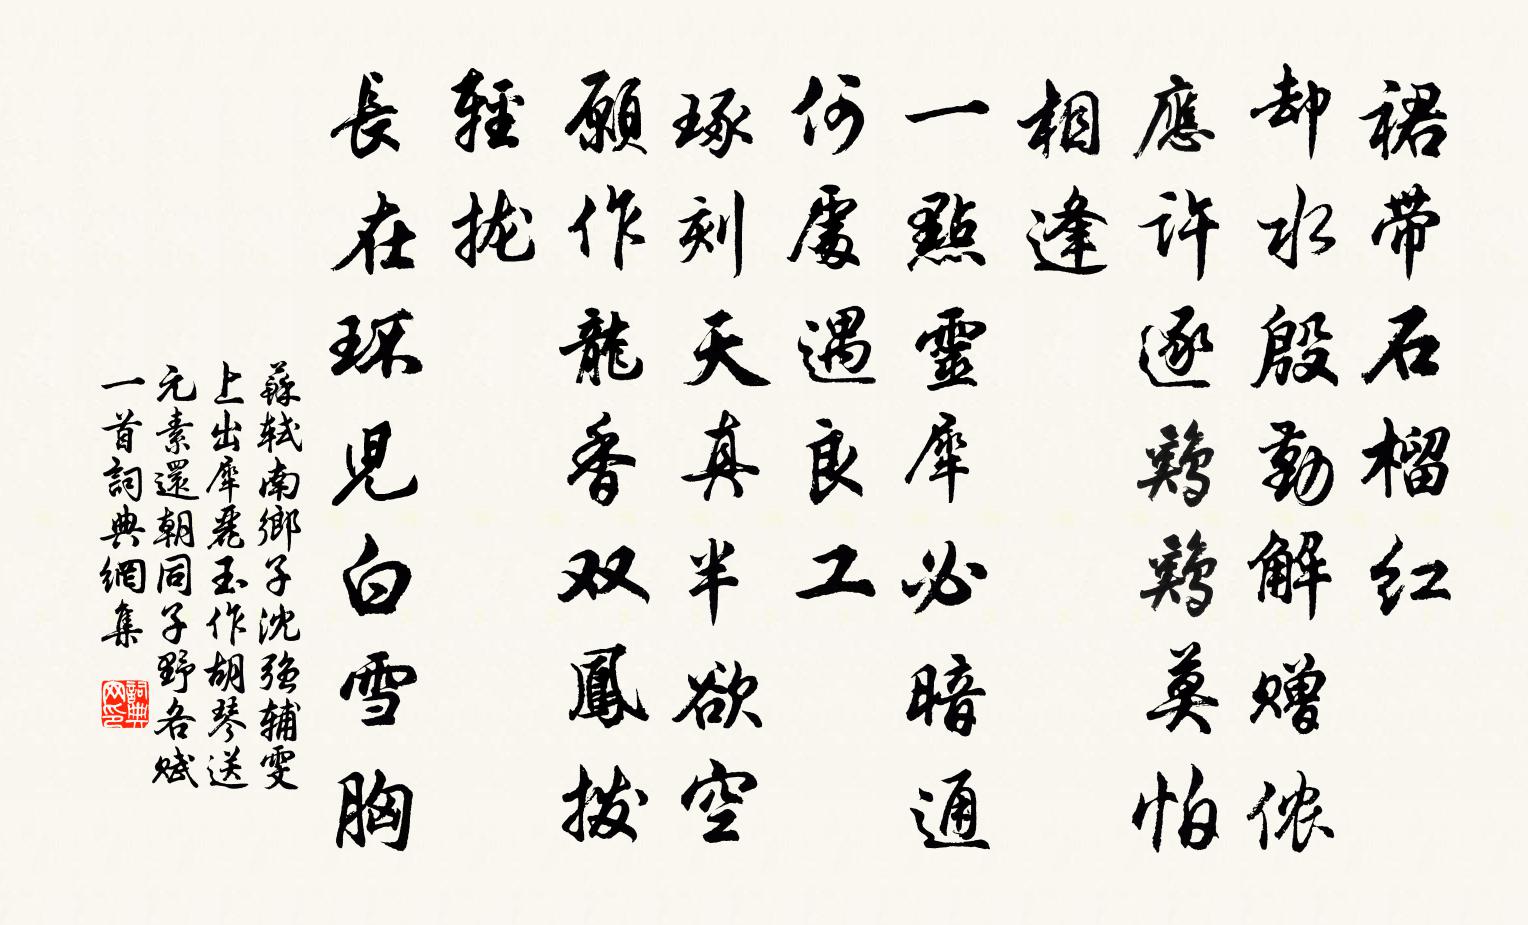 裙带石榴红
却水殷勤解赠侬
應许逐鷄鷄莫怕
相逢
一點靈犀必暗通
何處遇良工
琢刻天真半欲空
願作龍香双鳳撥
輕拢
長在環児白雪胸
蘇轼南鄉子沈强辅雯
上出犀麗玉作胡琴送
元素還朝同子野各赋
一首詞典網集
詞典
网印